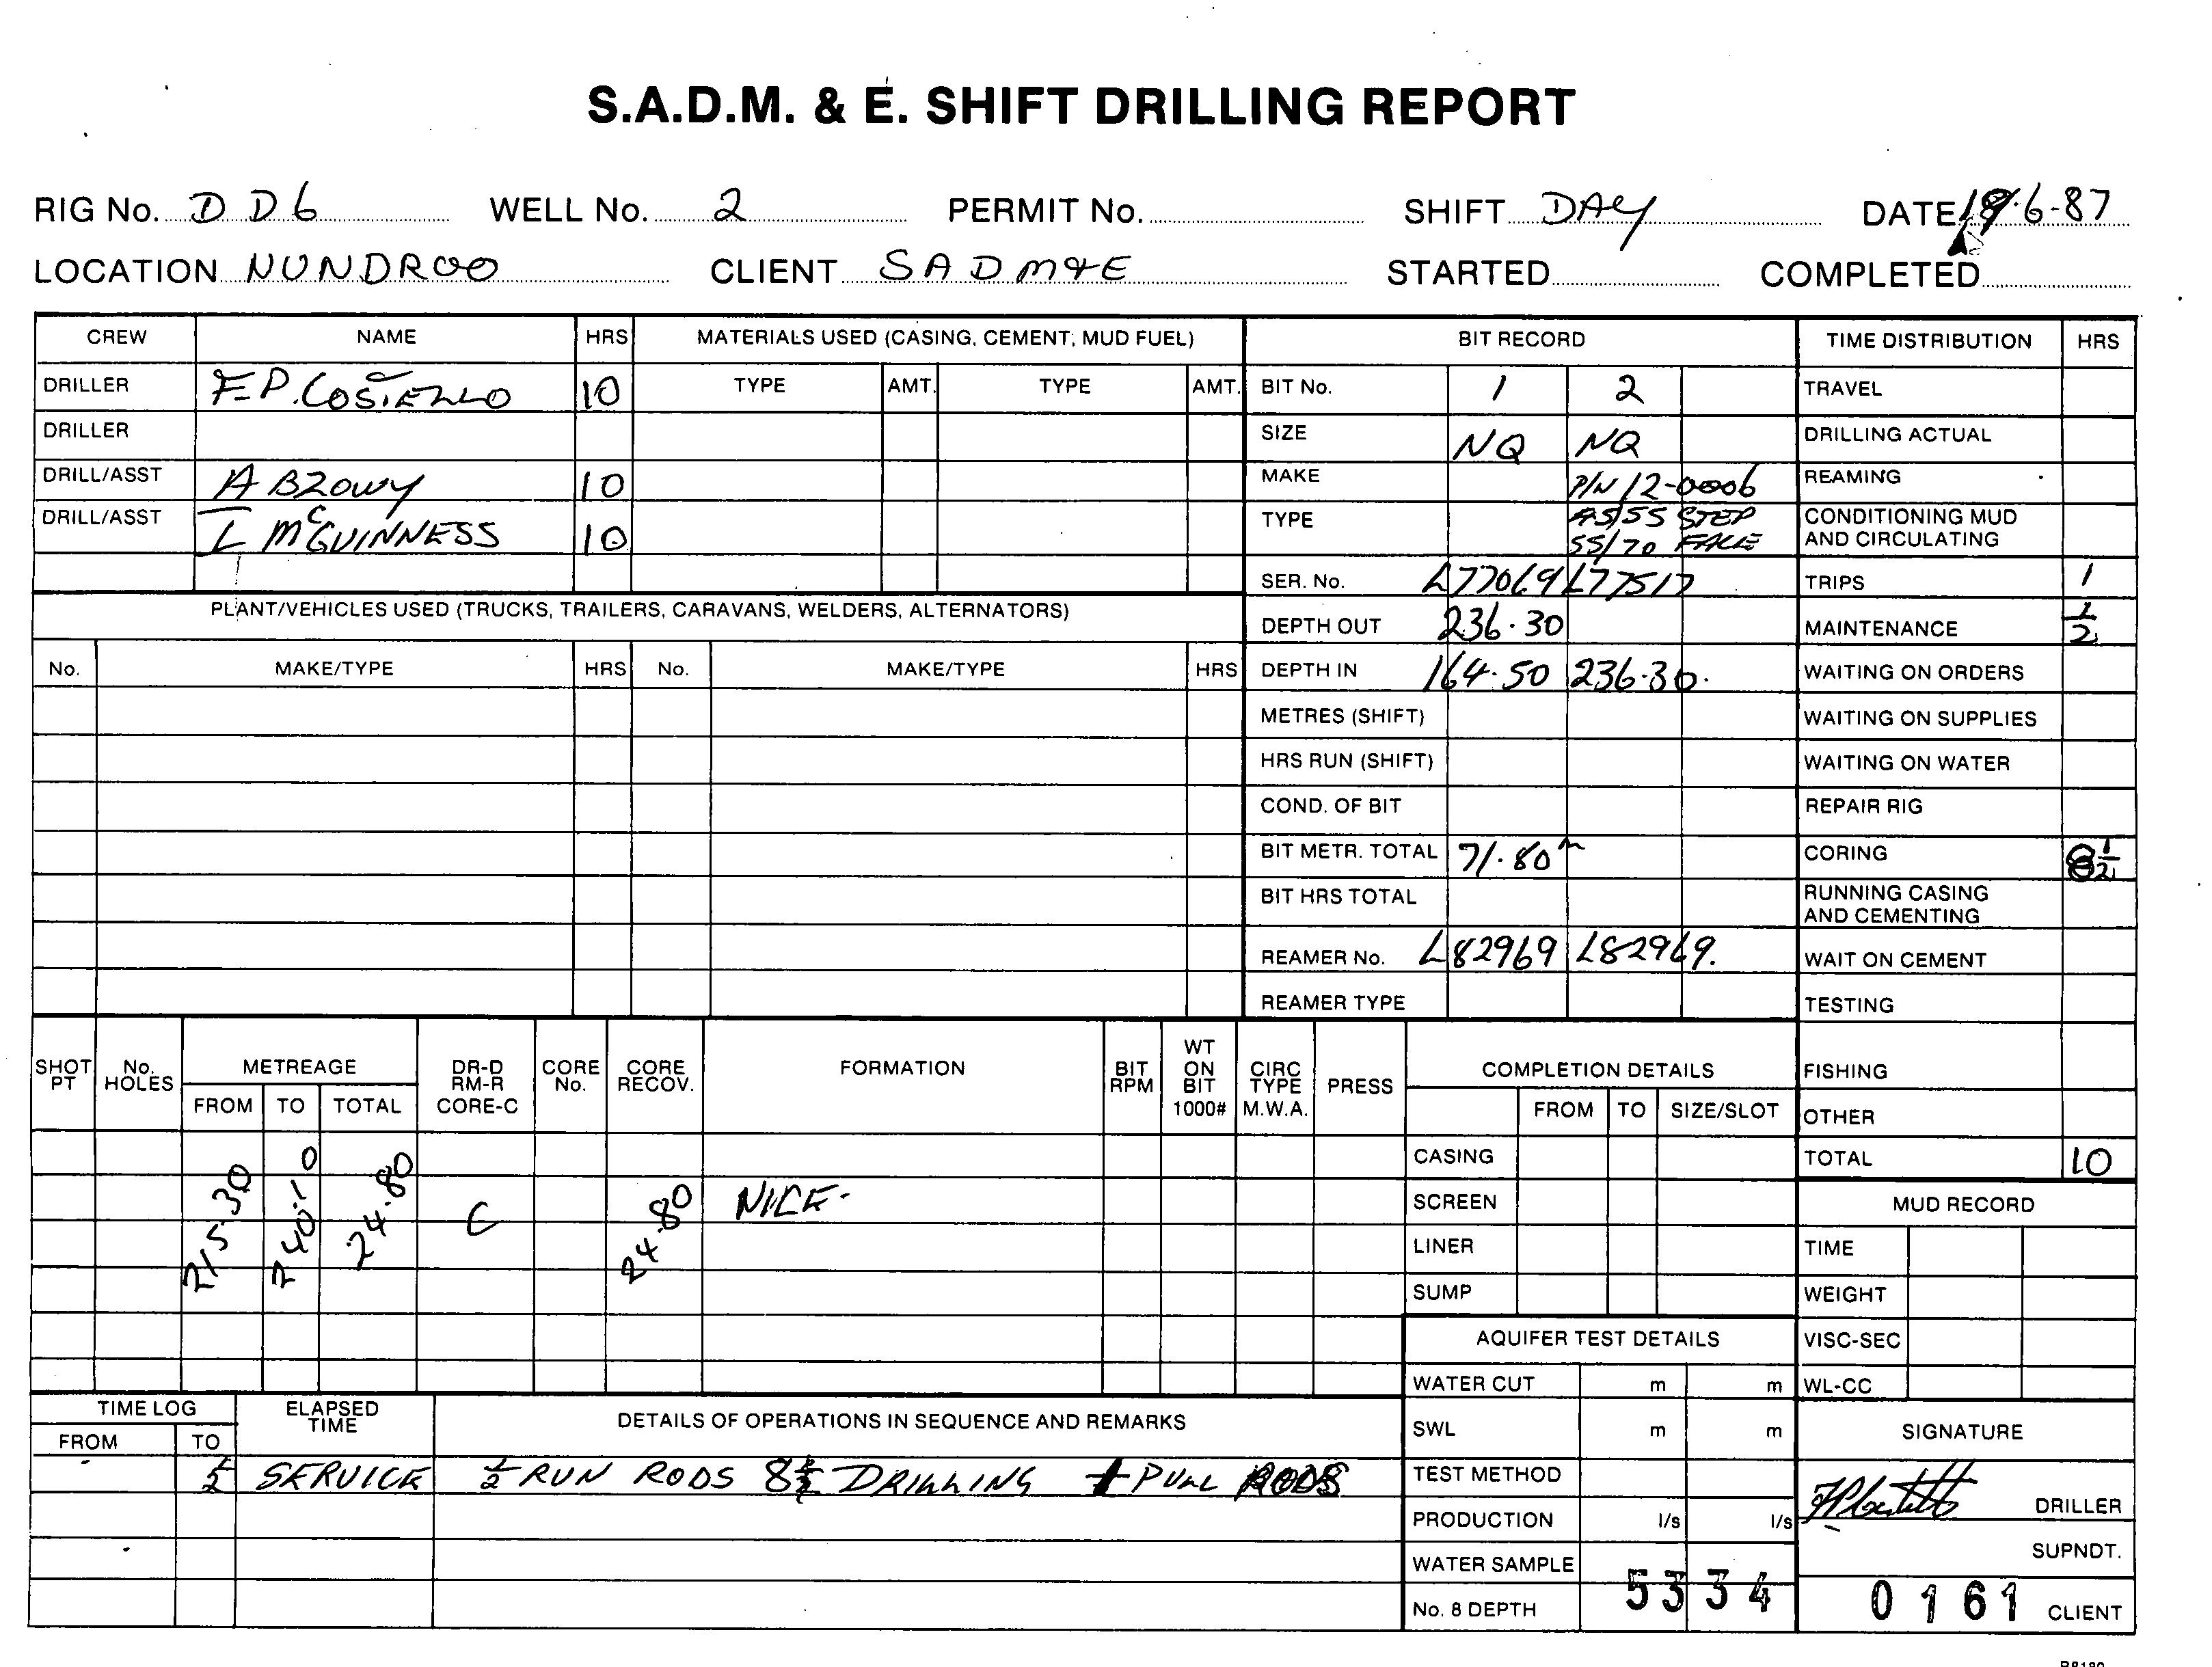 S.A.D.M. & E. SHIFT DRILLING REPORT
RIG No. DD6 WELL No. 2 PERMIT No. SHIFT DAY DATE 6-87
LOCATION NUNDROO CLIENT SADM&E STARTED COMPLETED
CREW NAME HRS MATERIALS USED (CASING, CEMENT, MUD FUEL) BIT RECORD TIME DISTRIBUTION HRS
DRILLER F.P. COSTELLO 10 TYPE AMT. TYPE AMT. BIT No. 1 2 TRAVEL
DRILLER SIZE NQ NQ DRILLING ACTUAL
DRILL/ASST A BZOWY 10 MAKE P/N 12-0006 REAMING
DRILL/ASST L McGUINNESS 10 TYPE AS/55 STEP CONDITIONING MUD
55/70 FACE AND CIRCULATING
SER. No. L77069 L77517 TRIPS 1
PLANT/VEHICLES USED (TRUCKS, TRAILERS, CARAVANS, WELDERS, ALTERNATORS) DEPTH OUT 236.30 MAINTENANCE 1/2
No. MAKE/TYPE HRS No. MAKE/TYPE HRS DEPTH IN 164.50 236.30. WAITING ON ORDERS
METRES (SHIFT) WAITING ON SUPPLIES
HRS RUN (SHIFT) WAITING ON WATER
COND. OF BIT REPAIR RIG
BIT METR. TOTAL 71.80m CORING 8 1/2
BIT HRS TOTAL RUNNING CASING
AND CEMENTING
REAMER No. L82969 L82969. WAIT ON CEMENT
REAMER TYPE TESTING
SHOT PT No. HOLES METREAGE DR-D RM-R CORE-C CORE No. CORE RECOV. FORMATION BIT RPM WT ON BIT 1000# CIRC TYPE M.W.A. PRESS COMPLETION DETAILS FISHING
FROM TO TOTAL FROM TO SIZE/SLOT OTHER
CASING TOTAL 10
215.30 240.10 24.80 C 24.80 NICE- SCREEN MUD RECORD
LINER TIME
SUMP WEIGHT
AQUIFER TEST DETAILS VISC-SEC
WATER CUT m m WL-CC
TIME LOG ELAPSED TIME DETAILS OF OPERATIONS IN SEQUENCE AND REMARKS SWL m m SIGNATURE
FROM TO
1/2 SERVICE 1/2 RUN RODS 8 1/2 DRILLING PULL RODS TEST METHOD
DRILLER
PRODUCTION l/s l/s
SUPNDT.
WATER SAMPLE
No. 8 DEPTH 5334 0161 CLIENT